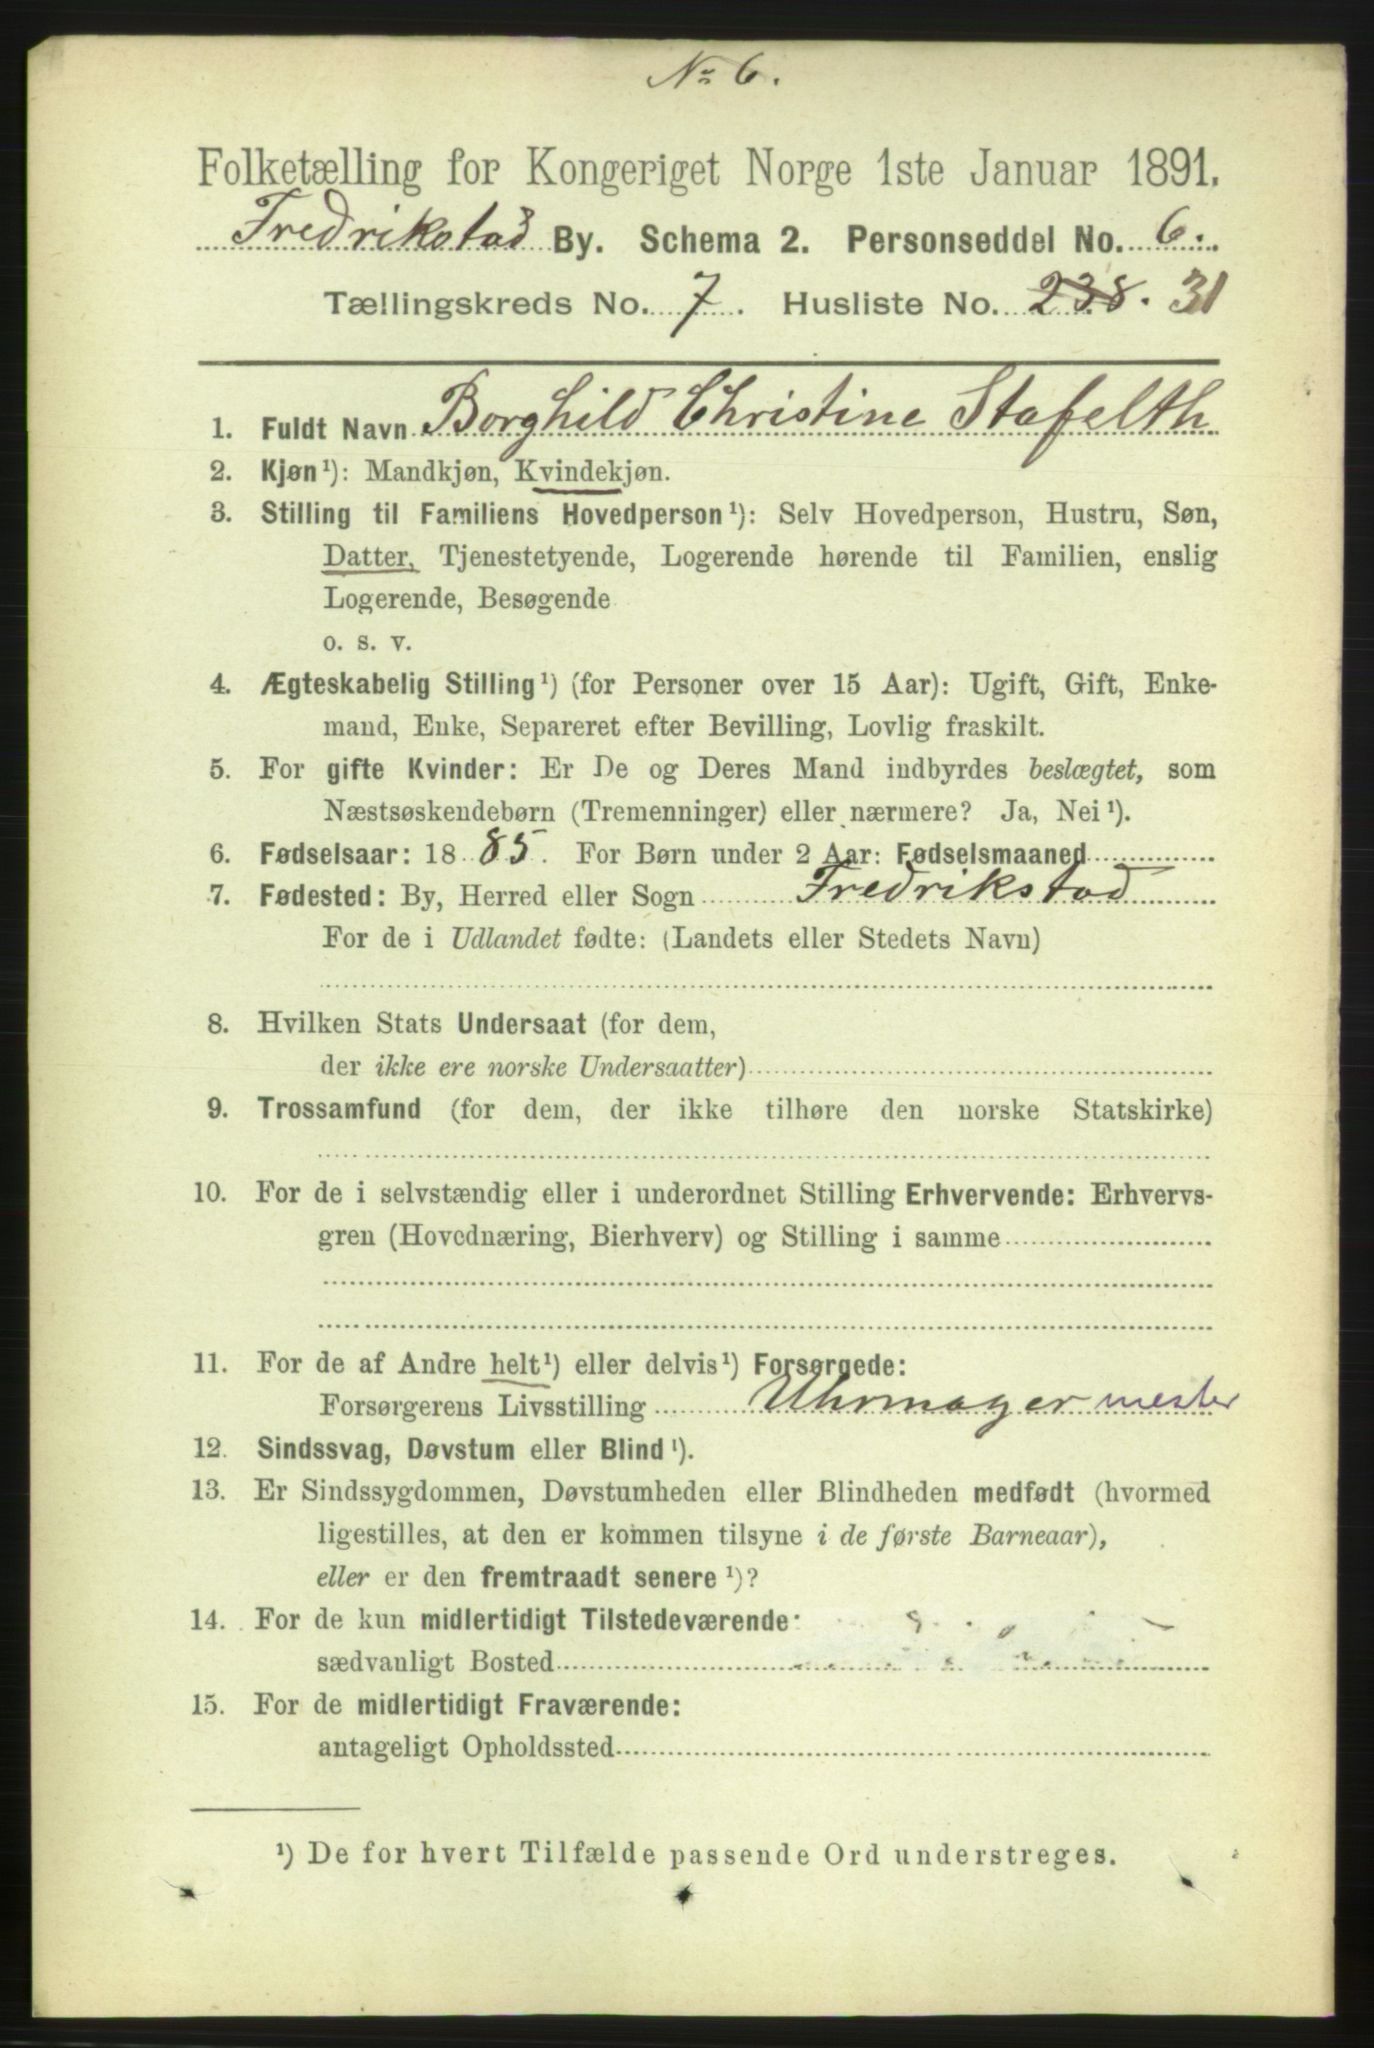 No 6.
Folketælling for Kongeriget Norge 1ste Januar 1891.
Fredrikstad By. Schema 2. Personseddel No. 6.
Tællingskreds No. 7. Husliste No. 238. 31
1. Fuldt Navn Borghild Christine Stafelth
2. Kjøn ¹): Mandkjøn, Kvindekjøn.
3. Stilling til Familiens Hovedperson ¹): Selv Hovedperson, Hustru, Søn,
Datter, Tjenestetyende, Logerende hørende til Familien, enslig
Logerende, Besøgende
o. s. v.
4. Ægteskabelig Stilling ¹) (for Personer over 15 Aar): Ugift, Gift, Enke-
mand, Enke, Separeret efter Bevilling, Lovlig fraskilt.
5. For gifte Kvinder: Er De og Deres Mand indbyrdes beslægtet, som
Næstsøskendebørn (Tremenninger) eller nærmere? Ja, Nei ¹).
6. Fødselsaar: 1885. For Børn under 2 Aar: Fødselsmaaned
7. Fødested: By, Herred eller Sogn Fredrikstad
For de i Udlandet fødte: (Landets eller Stedets Navn)
8. Hvilken Stats Undersaat (for dem,
der ikke ere norske Undersaatter)
9. Trossamfund (for dem, der ikke tilhøre den norske Statskirke)
10. For de i selvstændig eller i underordnet Stilling Erhvervende: Erhvervs-
gren (Hovednæring, Bierhverv) og Stilling i samme
11. For de af Andre helt ¹) eller delvis ¹) Forsørgede:
Forsørgerens Livsstilling Uhrmager mester
12. Sindssvag, Døvstum eller Blind ¹).
13. Er Sindssygdommen, Døvstumheden eller Blindheden medfødt (hvormed
ligestilles, at den er kommen tilsyne i de første Barneaar),
eller er den fremtraadt senere ¹)?
14. For de kun midlertidigt Tilstedeværende:
sædvanligt Bosted
15. For de midlertidigt Fraværende:
antageligt Opholdssted
¹) De for hvert Tilfælde passende Ord understreges.